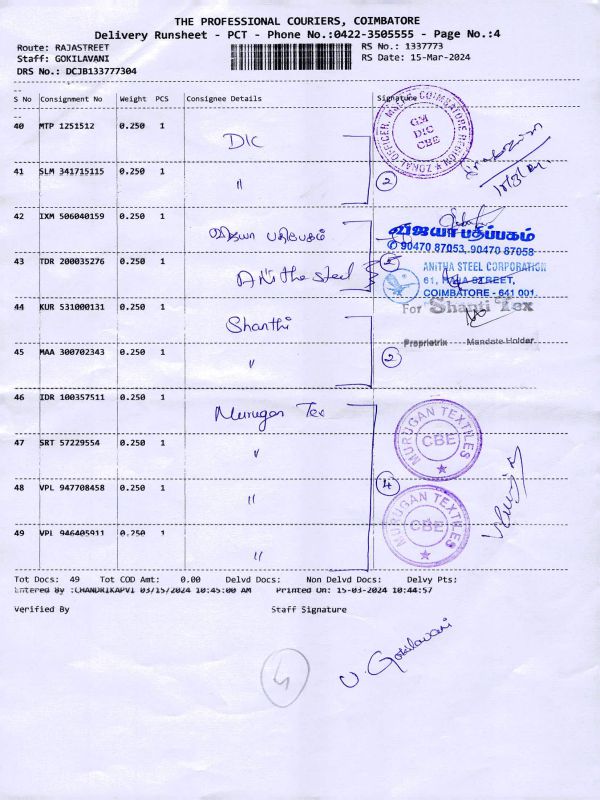 THE PROFESSIONAL COURIERS, COIMBATORE
Delivery Runsheet - PCT - Phone No.:0422-3505555 - Page No.:4
Route: RAJASTREET
RS No.: 1337773
Staff: GOKILAVANI
RS Date: 15-Mar-2024
DRS No.: DCJB133777304
S No Consignment No Weight PCS Consignee Details Signature
40 MTP 1251512 0.250 1 DIC
ZONAL OFFICER, COIMBATORE REGION
GM
DIC
CBE
41 SLM 341715115 0.250 1 "
2
42 IXM 506040159 0.250 1 விஜயா பதிப்பகம்
விஜயா பதிப்பகம்
90470 87053, 90470 87058
43 TDR 200035276 0.250 1 Anitha steel
ANITHA STEEL CORPORATION
61, RAJA STREET,
COIMBATORE - 641 001.
44 KUR 531000131 0.250 1 Shanthi
For Shanti Tex
Proprietrix Mandate Holder
45 MAA 300702343 0.250 1 "
2
46 IDR 100357511 0.250 1 Murugan Tex
MURUGAN TEXTILES
CBE
47 SRT 57229554 0.250 1 "
48 VPL 947708458 0.250 1 "
4
MURUGAN TEXTILES
CBE
49 VPL 946405911 0.250 1 "
Tot Docs: 49 Tot COD Amt: 0.00 Delvd Docs: Non Delvd Docs: Delvy Pts:
Entered By :CHANDRIKAPVI 03/15/2024 10:45:00 AM Printed On: 15-03-2024 10:44:57
Verified By Staff Signature
V. Gokilavani
4